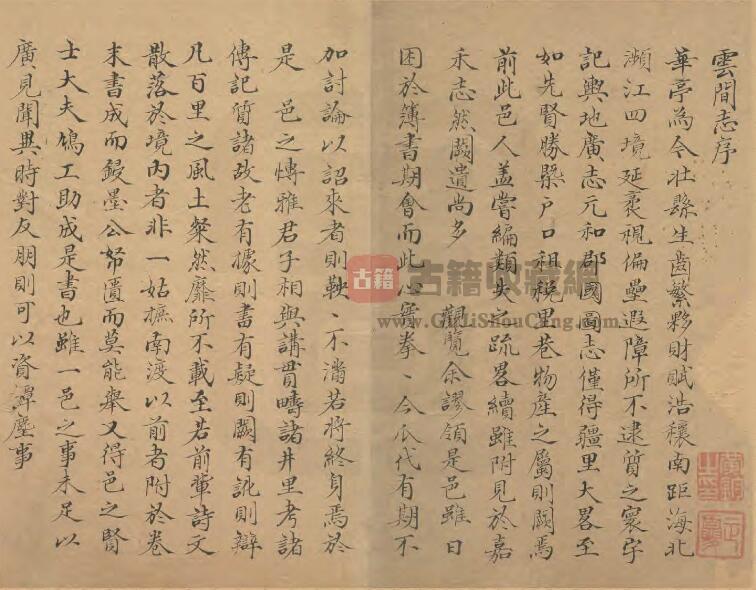 雲間志序
華亭為今壯縣生齒繁夥財賦浩穰南距海北
瀕江四境延袤視偏壘遐障所不逮質之寰宇
記輿地廣志元和郡國圖志僅得疆里大畧至
如先賢勝槩户口租税里巷物產之屬則闕焉
前此邑人盖嘗編類失之疏畧續雖附見於嘉
禾志然闕遺尚多 觀覽余謬領是邑雖日
困於簿書期會而此心實拳〻今瓜代有期不
加討論以詔來者則鞅〻不滿若將終身焉於
是 邑之愽雅君子相與講貫疇諸井里考諸
傳記質諸故老有據則書有疑則闕有訛則辯
凡百里之風土粲然靡所不載至若前軰詩文
散落於境内者非一姑摭南渡以前者附於卷
末書成而鋟墨公帑匱而莫能舉又得邑之賢
士大夫鳩工助成是書也雖一邑之事未足以
廣見聞異時對友朋則可以資譚麈事
古籍
古籍收藏網
www.GuJiShouCang.com